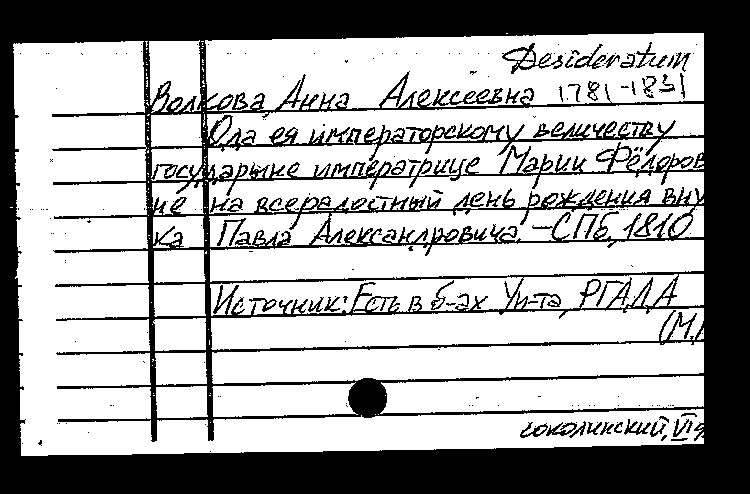 Desideratum
Волкова, Анна Алексеевна 1781-1831
Ода ея императорскому величеству
государыне императрице Марии Фёдоров
не на всерадостный день рождения вну
ка Павла Александровича. – СПб, 1810
Источник: Есть в б-ах Ун-та, РГАДА
(М.
соколинский, VI